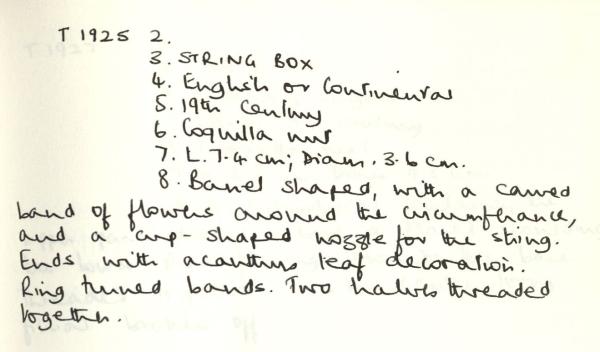 T 1925 2.
3. STRING BOX
4. English or Continental
5. 19th Century
6. Coquilla nut
7. L. 7.4 cm; Diam. 3.6 cm.
8. Barrel shaped, with a carved
band of flowers around the circumference,
and a cup-shaped nozzle for the string.
Ends with acanthus leaf decoration.
Ring turned bands. Two halves threaded
together.